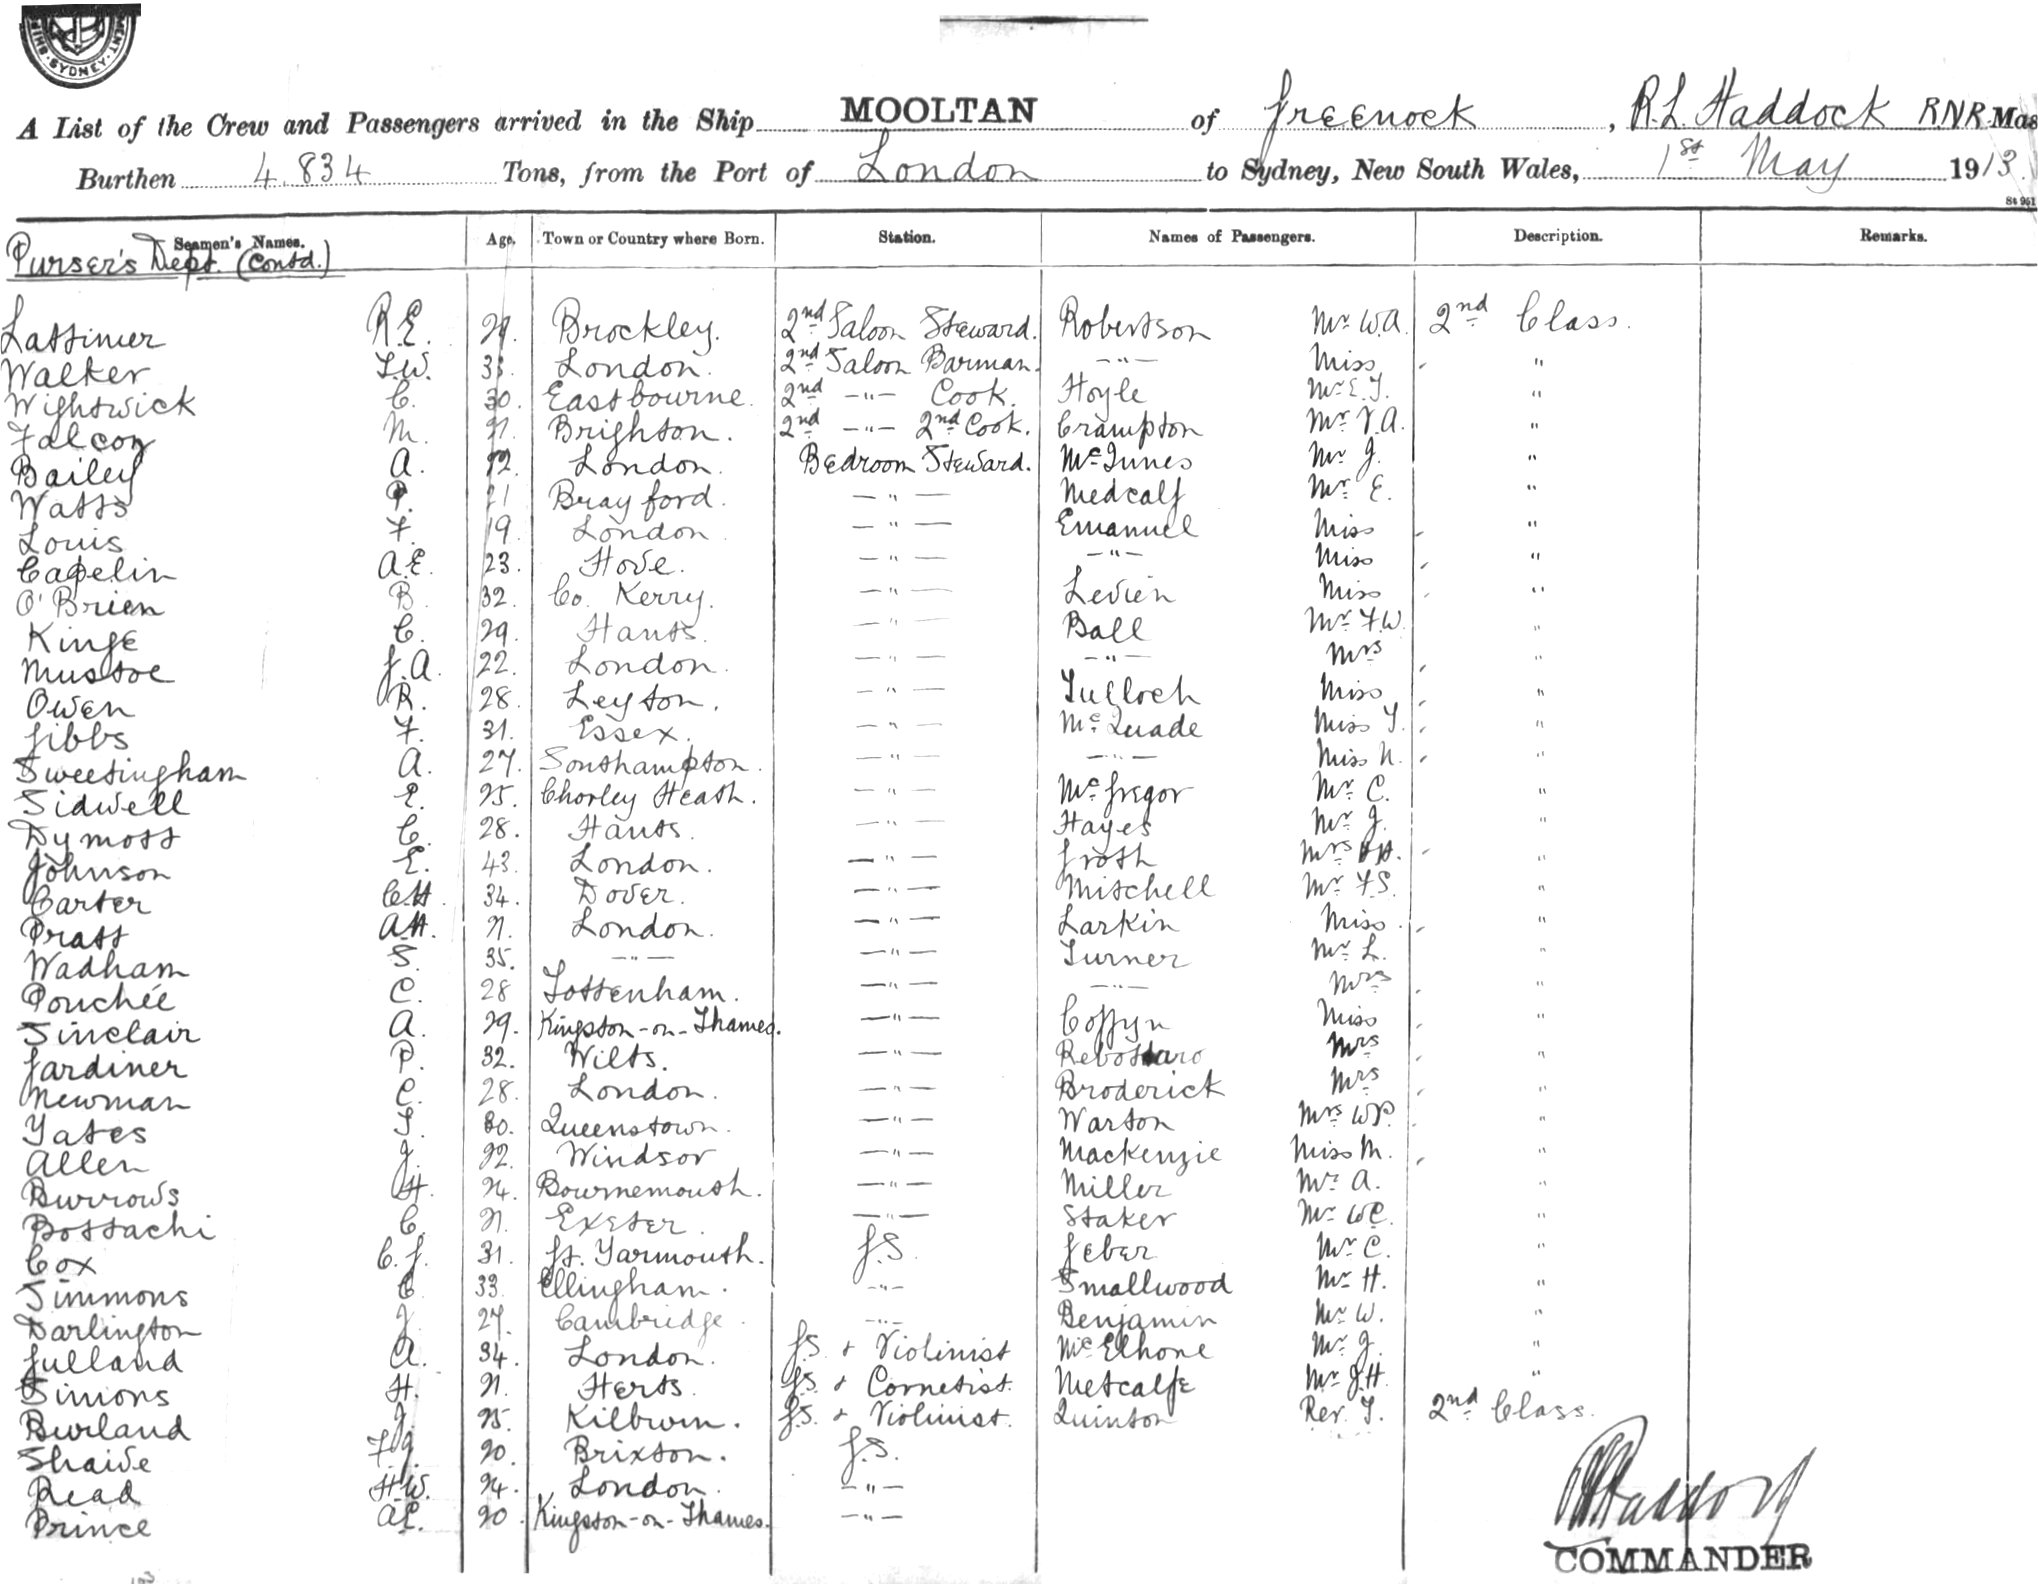 SYDNEY
A List of the Crew and Passengers arrived in the Ship MOOLTAN of Greenock, R.L. Haddock RNR Mas
Burthen 4.834 Tons, from the Port of London to Sydney, New South Wales, 1st May 1913.
St 951
Seamen's Names. Age. Town or Country where Born. Station. Names of Passengers. Description. Remarks.
Purser's Dept. (Contd.)
Lattimer R.E. 29. Brockley. 2nd Saloon Steward. Robertson Mr W.A. 2nd Class.
Walker T.W. 33. London. 2nd Saloon Barman. —"— Miss "
Wightwick C. 30. Eastbourne. 2nd —"— Cook. Hoyle Mr E.T. "
Falcon M. 21. Brighton. 2nd —"— 2nd Cook. Crampton Mr V.A. "
Bailey A. 22. London. Bedroom Steward. McInnes Mr J. "
Watts P. 21 Brayford. —"— Medcalf Mr E. "
Louis F. 19. London. —"— Emanuel Miss "
Capelin A.E. 23. Hove. —"— —"— Miss "
O'Brien B. 32. Co. Kerry. —"— Levien Miss "
Kinge C. 29. Hants. —"— Ball Mr F.W. "
Mustoe J.A. 22. London. —"— —"— Mrs "
Owen R. 28. Leyton. —"— Tulloch Miss "
Gibbs F. 31. Essex. —"— McQuade Miss T. "
Sweetingham A. 27. Southampton. —"— —"— Miss N. "
Sidwell E. 25. Chorley Heath. —"— McGregor Mr C. "
Dymott C. 28. Hants. —"— Hayes Mr J. "
Johnson E. 43. London. —"— Groth Mrs "
Carter C.H. 34. Dover. —"— Mitchell Mr F.S. "
Pratt A.H. 21. London. —"— Larkin Miss "
Wadham S. 35. —"— —"— Turner Mr L. "
Pouchée C. 28 Tottenham. —"— —"— Mrs "
Sinclair A. 29. Kingston-on-Thames. —"— Coffyn Miss "
Gardiner P. 32. Wilts. —"— Mrs "
Newman C. 28. London. —"— Broderick Mrs "
Yates T. 30. Queenstown. —"— Warton Mrs W.P. "
Allen J. 22. Windsor —"— Mackenzie Miss M. "
Burrows H. 24. Bournemouth. —"— Miller Mr A. "
Bottachi C. 21. Exeter. —"— Staker Mr W.C. "
Cox C.J. 31. Gt. Yarmouth. G.S. Geber Mr C. "
Simmons C. 33. Ellingham. —"— Smallwood Mr H. "
Darlington J. 27. Cambridge. —"— Benjamin Mr W. "
Gulland A. 34. London. G.S. + Violinist McElhone Mr J. "
Simons H. 21. Herts. G.S. + Cornetist. Metcalfe Mr J.H. "
Burland J. 25. Kilburn. G.S. + Violinist. Quinton Rev. T. 2nd Class.
Shaive F.G. 20. Brixton. G.S.
Read H.W. 24. London. —"—
Prince A.E. 20. Kingston-on-Thames. —"—
R Haddock
COMMANDER